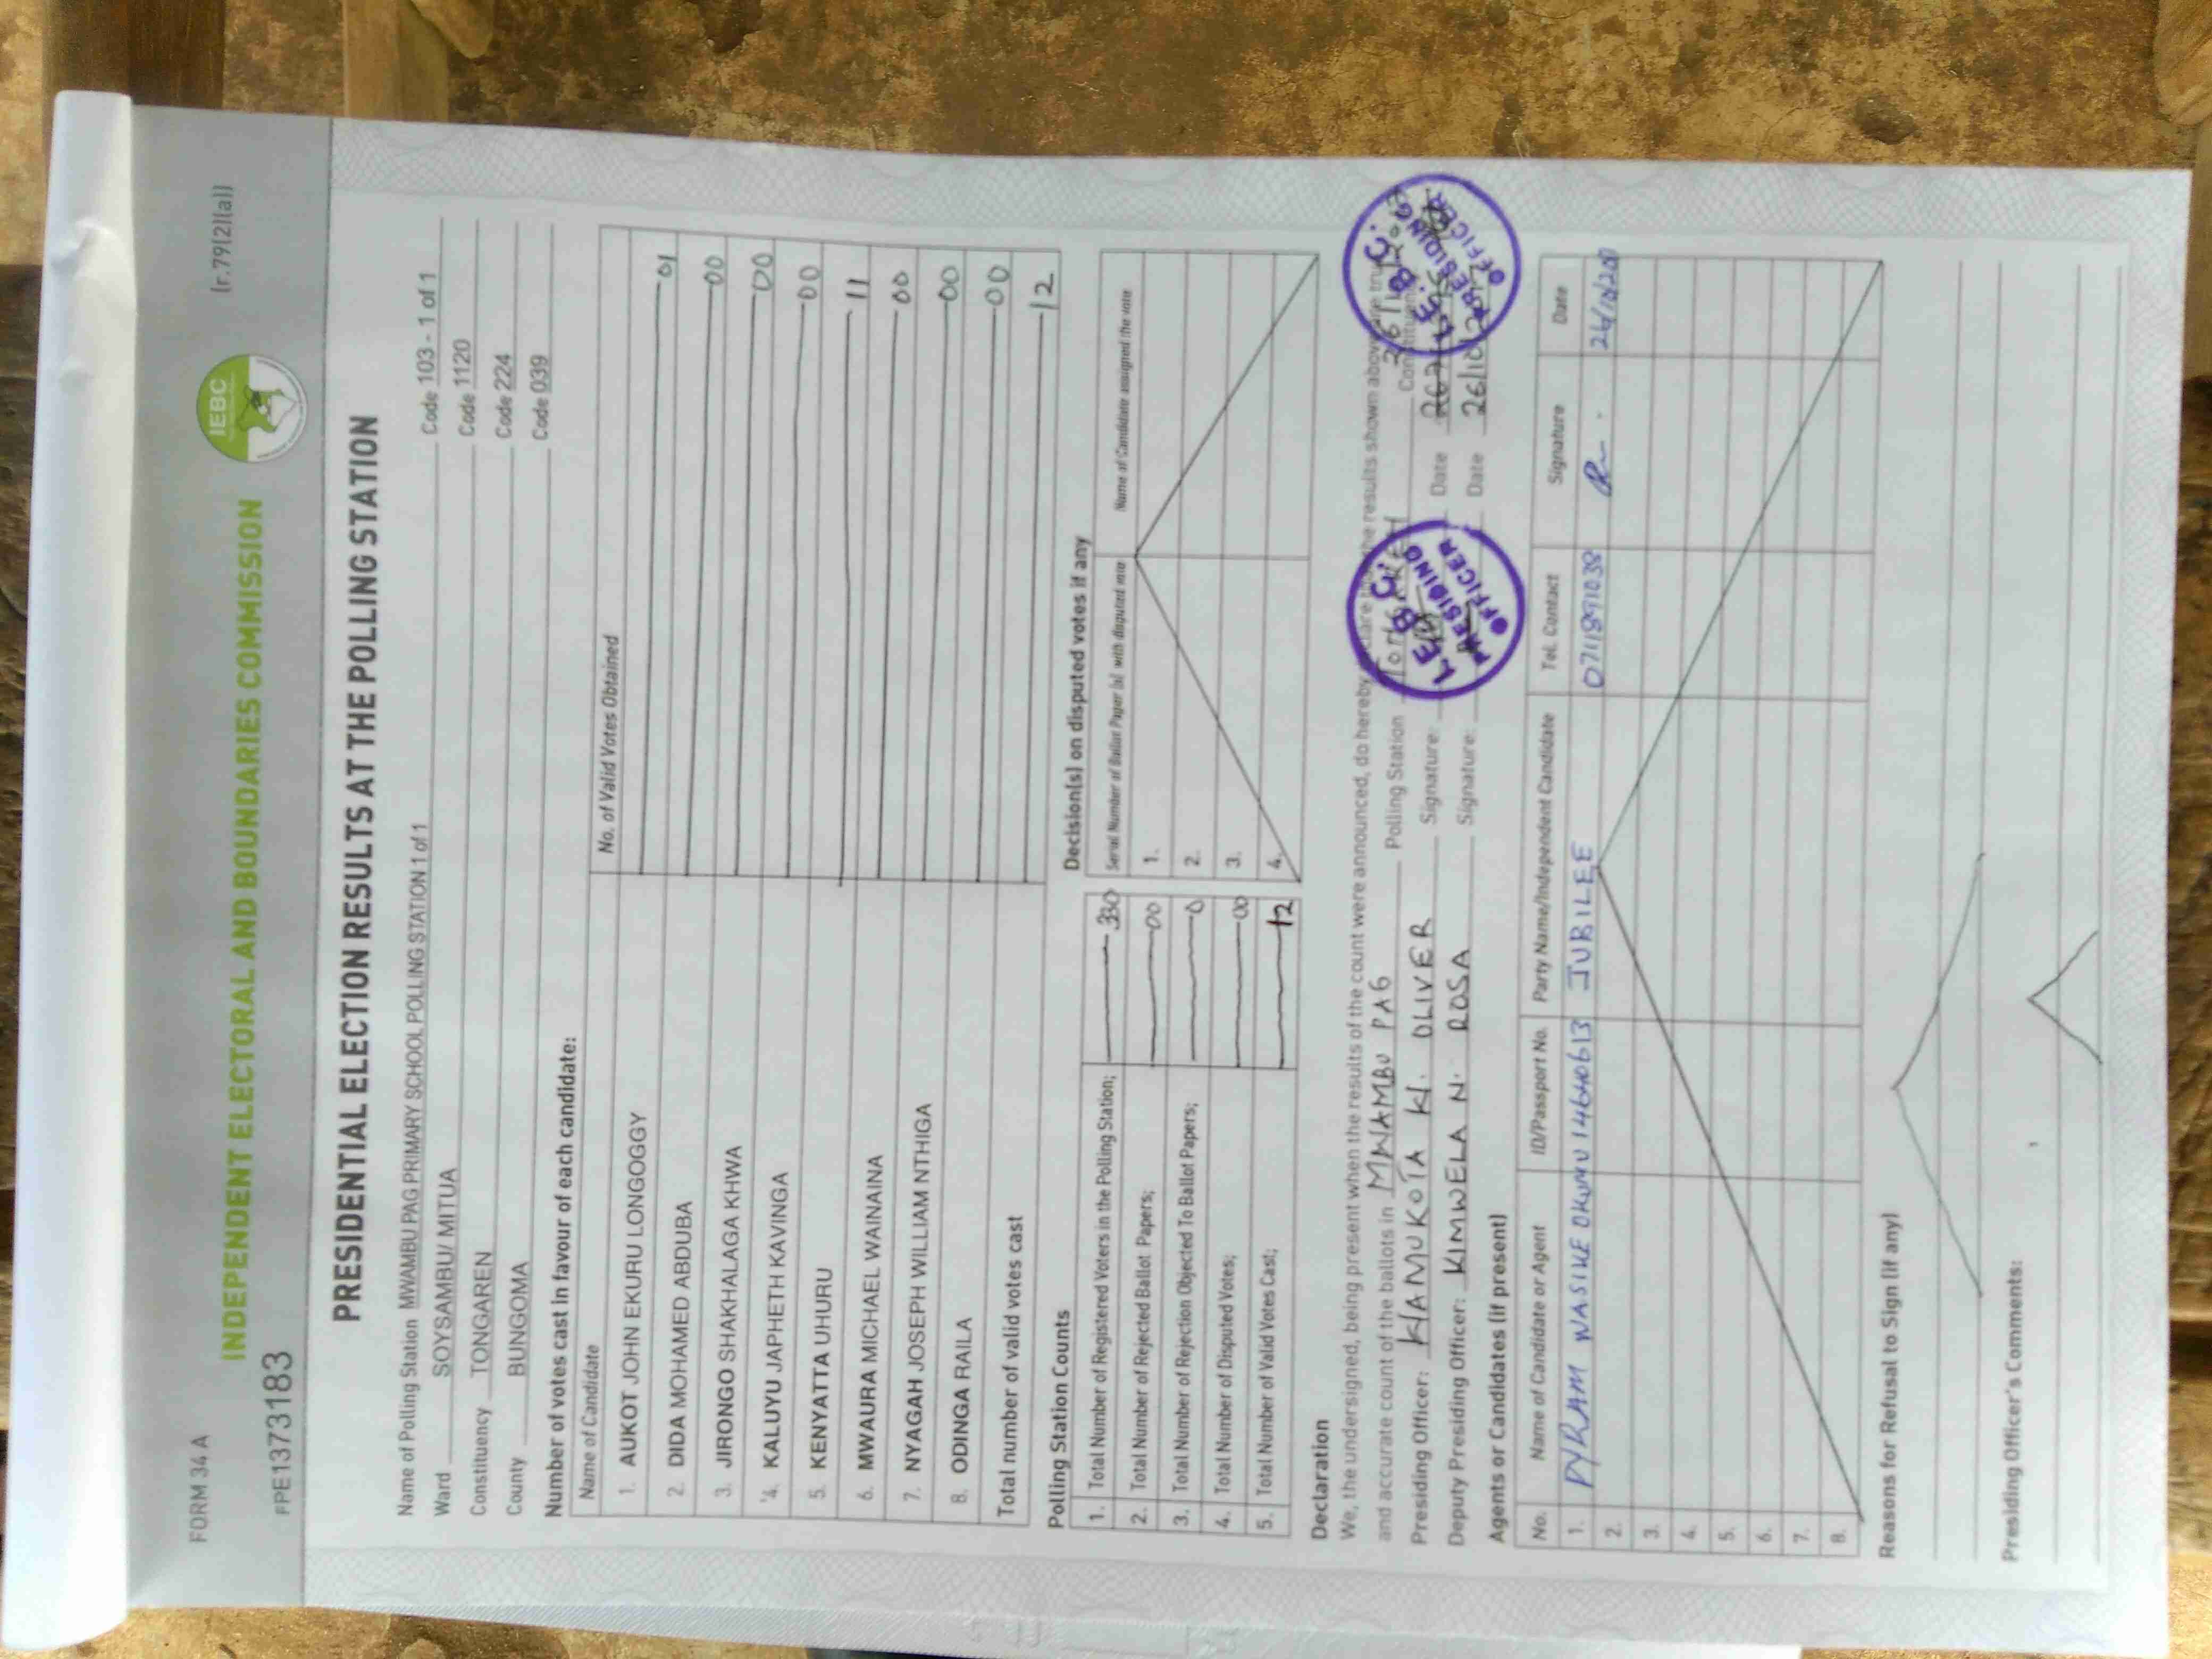 FORM 34 A
(r.79(2)(a))
IEBC
INDEPENDENT ELECTORAL AND BOUNDARIES COMMISSION
PPE1373183
PRESIDENTIAL ELECTION RESULTS AT THE POLLING STATION
Name of Polling Station MWAMBU PAG PRIMARY SCHOOL POLLING STATION 1 of 1 Code 103 - 1 of 1
Ward SOYSAMBU/ MITUA Code 1120
Constituency TONGAREN Code 224
County BUNGOMA Code 039
Number of votes cast in favour of each candidate:
Name of Candidate No. of Valid Votes Obtained
1. AUKOT JOHN EKURU LONGOGGY 01
2. DIDA MOHAMED ABDUBA 00
3. JIRONGO SHAKHALAGA KHWA 00
4. KALUYU JAPHETH KAVINGA 00
5. KENYATTA UHURU 11
6. MWAURA MICHAEL WAINAINA 00
7. NYAGAH JOSEPH WILLIAM NTHIGA 00
8. ODINGA RAILA 00
Total number of valid votes cast 12
Polling Station Counts
1. Total Number of Registered Voters in the Polling Station; 330
2. Total Number of Rejected Ballot Papers; 00
3. Total Number of Rejection Objected To Ballot Papers; 0
4. Total Number of Disputed Votes; 00
5. Total Number of Valid Votes Cast; 12
Decision(s) on disputed votes if any
Serial Number of Ballot Paper (s) with disputed vote Name of Candidate assigned the vote
1.
2.
3.
4.
Declaration
We, the undersigned, being present when the results of the count were announced, do hereby declare the results shown above
and accurate count of the ballots in MWAMBU PAG Polling Station TONGAREN
Presiding Officer: WAMUKOTA W. OLIVER Signature: Date
Deputy Presiding Officer: KIMWELA N. ROSA Signature: Date 26/10/2017
I.E.B.C. PRESIDING OFFICER
I.E.B.C. PRESIDING OFFICER
Agents or Candidates (if present)
No. Name of Candidate or Agent ID/Passport No. Party Name/Independent Candidate Tel. Contact Signature Date
1. PYRAM WASIKE OKUMU 14640613 JUBILEE 0711891038
2.
3.
4.
5.
6.
7.
8.
Reasons for Refusal to Sign (if any)
Presiding Officer's Comments: